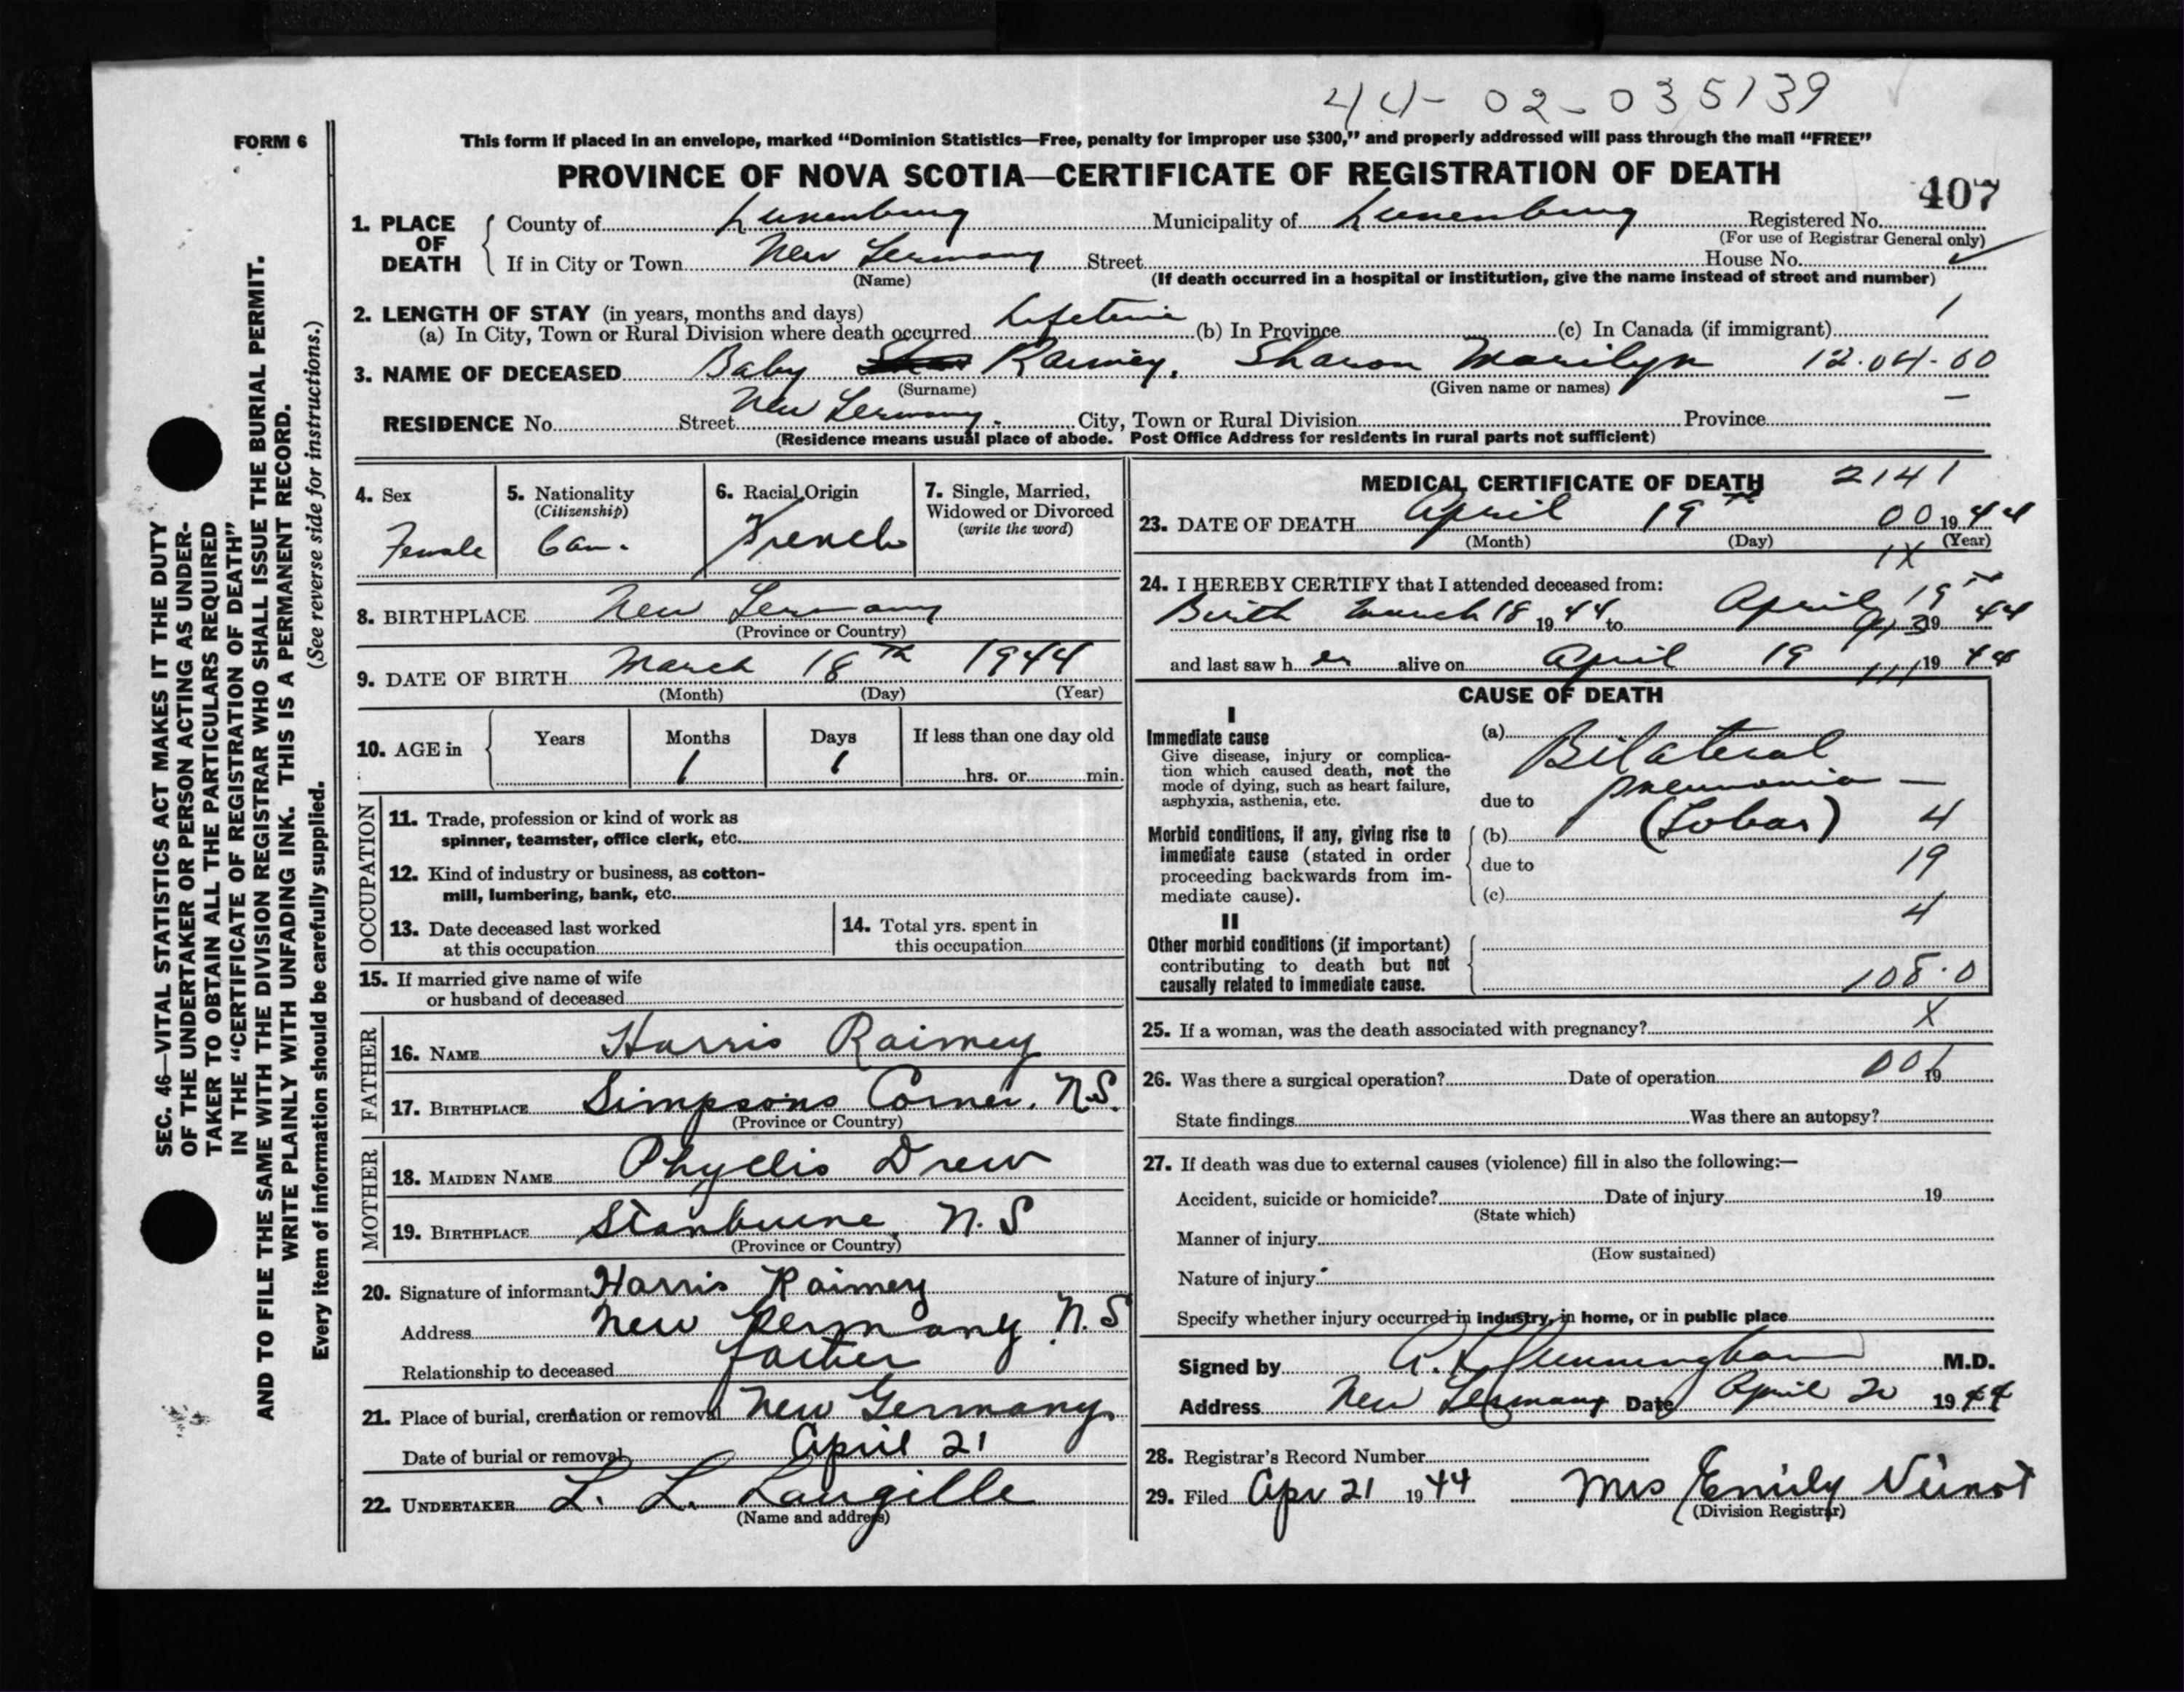 44-02-035139
FORM 6
This form if placed in an envelope, marked “Dominion Statistics—Free, penalty for improper use $300,” and properly addressed will pass through the mail “FREE”
PROVINCE OF NOVA SCOTIA—CERTIFICATE OF REGISTRATION OF DEATH
407
1. PLACE OF DEATH County of Lunenburg Municipality of Lunenburg Registered No.
(For use of Registrar General only)
If in City or Town New Germany Street House No.
(Name) (If death occurred in a hospital or institution, give the name instead of street and number)
2. LENGTH OF STAY (in years, months and days)
(a) In City, Town or Rural Division where death occurred Lifetime (b) In Province (c) In Canada (if immigrant) 1
3. NAME OF DECEASED Baby Raimey, Sharon Marilyn 12.04.60
(Surname) (Given name or names)
RESIDENCE No. Street New Germany. City, Town or Rural Division Province
(Residence means usual place of abode. Post Office Address for residents in rural parts not sufficient)
4. Sex Female
5. Nationality (Citizenship) Can.
6. Racial Origin French
7. Single, Married, Widowed or Divorced (write the word)
8. BIRTHPLACE New Germany
(Province or Country)
9. DATE OF BIRTH March 18th 1944
(Month) (Day) (Year)
10. AGE in Years Months 1 Days 1 If less than one day old hrs. or min.
OCCUPATION
11. Trade, profession or kind of work as
spinner, teamster, office clerk, etc.
12. Kind of industry or business, as cotton-
mill, lumbering, bank, etc.
13. Date deceased last worked
at this occupation
14. Total yrs. spent in
this occupation
15. If married give name of wife
or husband of deceased
FATHER
16. NAME Harris Raimey
17. BIRTHPLACE Simpsons Corner, N.S.
(Province or Country)
MOTHER
18. MAIDEN NAME Phyllis Drew
19. BIRTHPLACE Stanburne, N.S
(Province or Country)
20. Signature of informant Harris Raimey
Address New Germany N.S
Relationship to deceased father
21. Place of burial, cremation or removal New Germany
Date of burial or removal April 21
22. UNDERTAKER L. L. Langille
(Name and address)
MEDICAL CERTIFICATE OF DEATH 2141
23. DATE OF DEATH April 19th 00 1944
(Month) (Day) (Year)
1X
24. I HEREBY CERTIFY that I attended deceased from:
Birth March 18 1944 to April 19th 1944
and last saw her alive on April 19 1944
CAUSE OF DEATH
I
Immediate cause
Give disease, injury or complica-
tion which caused death, not the
mode of dying, such as heart failure,
asphyxia, asthenia, etc.
(a) Bilateral
due to pneumonia —
Morbid conditions, if any, giving rise to
immediate cause (stated in order
proceeding backwards from im-
mediate cause).
(b) (Lobar) 4
due to 19
(c)
4
II
Other morbid conditions (if important)
contributing to death but not
causally related to immediate cause.
108.0
25. If a woman, was the death associated with pregnancy? X
26. Was there a surgical operation? Date of operation 001 19
State findings Was there an autopsy?
27. If death was due to external causes (violence) fill in also the following:—
Accident, suicide or homicide? Date of injury 19
(State which)
Manner of injury
(How sustained)
Nature of injury
Specify whether injury occurred in industry, in home, or in public place
Signed by Cunningham M.D.
Address New Germany Date April 20 1944
28. Registrar’s Record Number
29. Filed Apr 21 1944 Mrs Emily
(Division Registrar)
SEC. 46—VITAL STATISTICS ACT MAKES IT THE DUTY
OF THE UNDERTAKER OR PERSON ACTING AS UNDER-
TAKER TO OBTAIN ALL THE PARTICULARS REQUIRED
IN THE “CERTIFICATE OF REGISTRATION OF DEATH”
AND TO FILE THE SAME WITH THE DIVISION REGISTRAR WHO SHALL ISSUE THE BURIAL PERMIT.
WRITE PLAINLY WITH UNFADING INK. THIS IS A PERMANENT RECORD.
Every item of information should be carefully supplied. (See reverse side for instructions.)